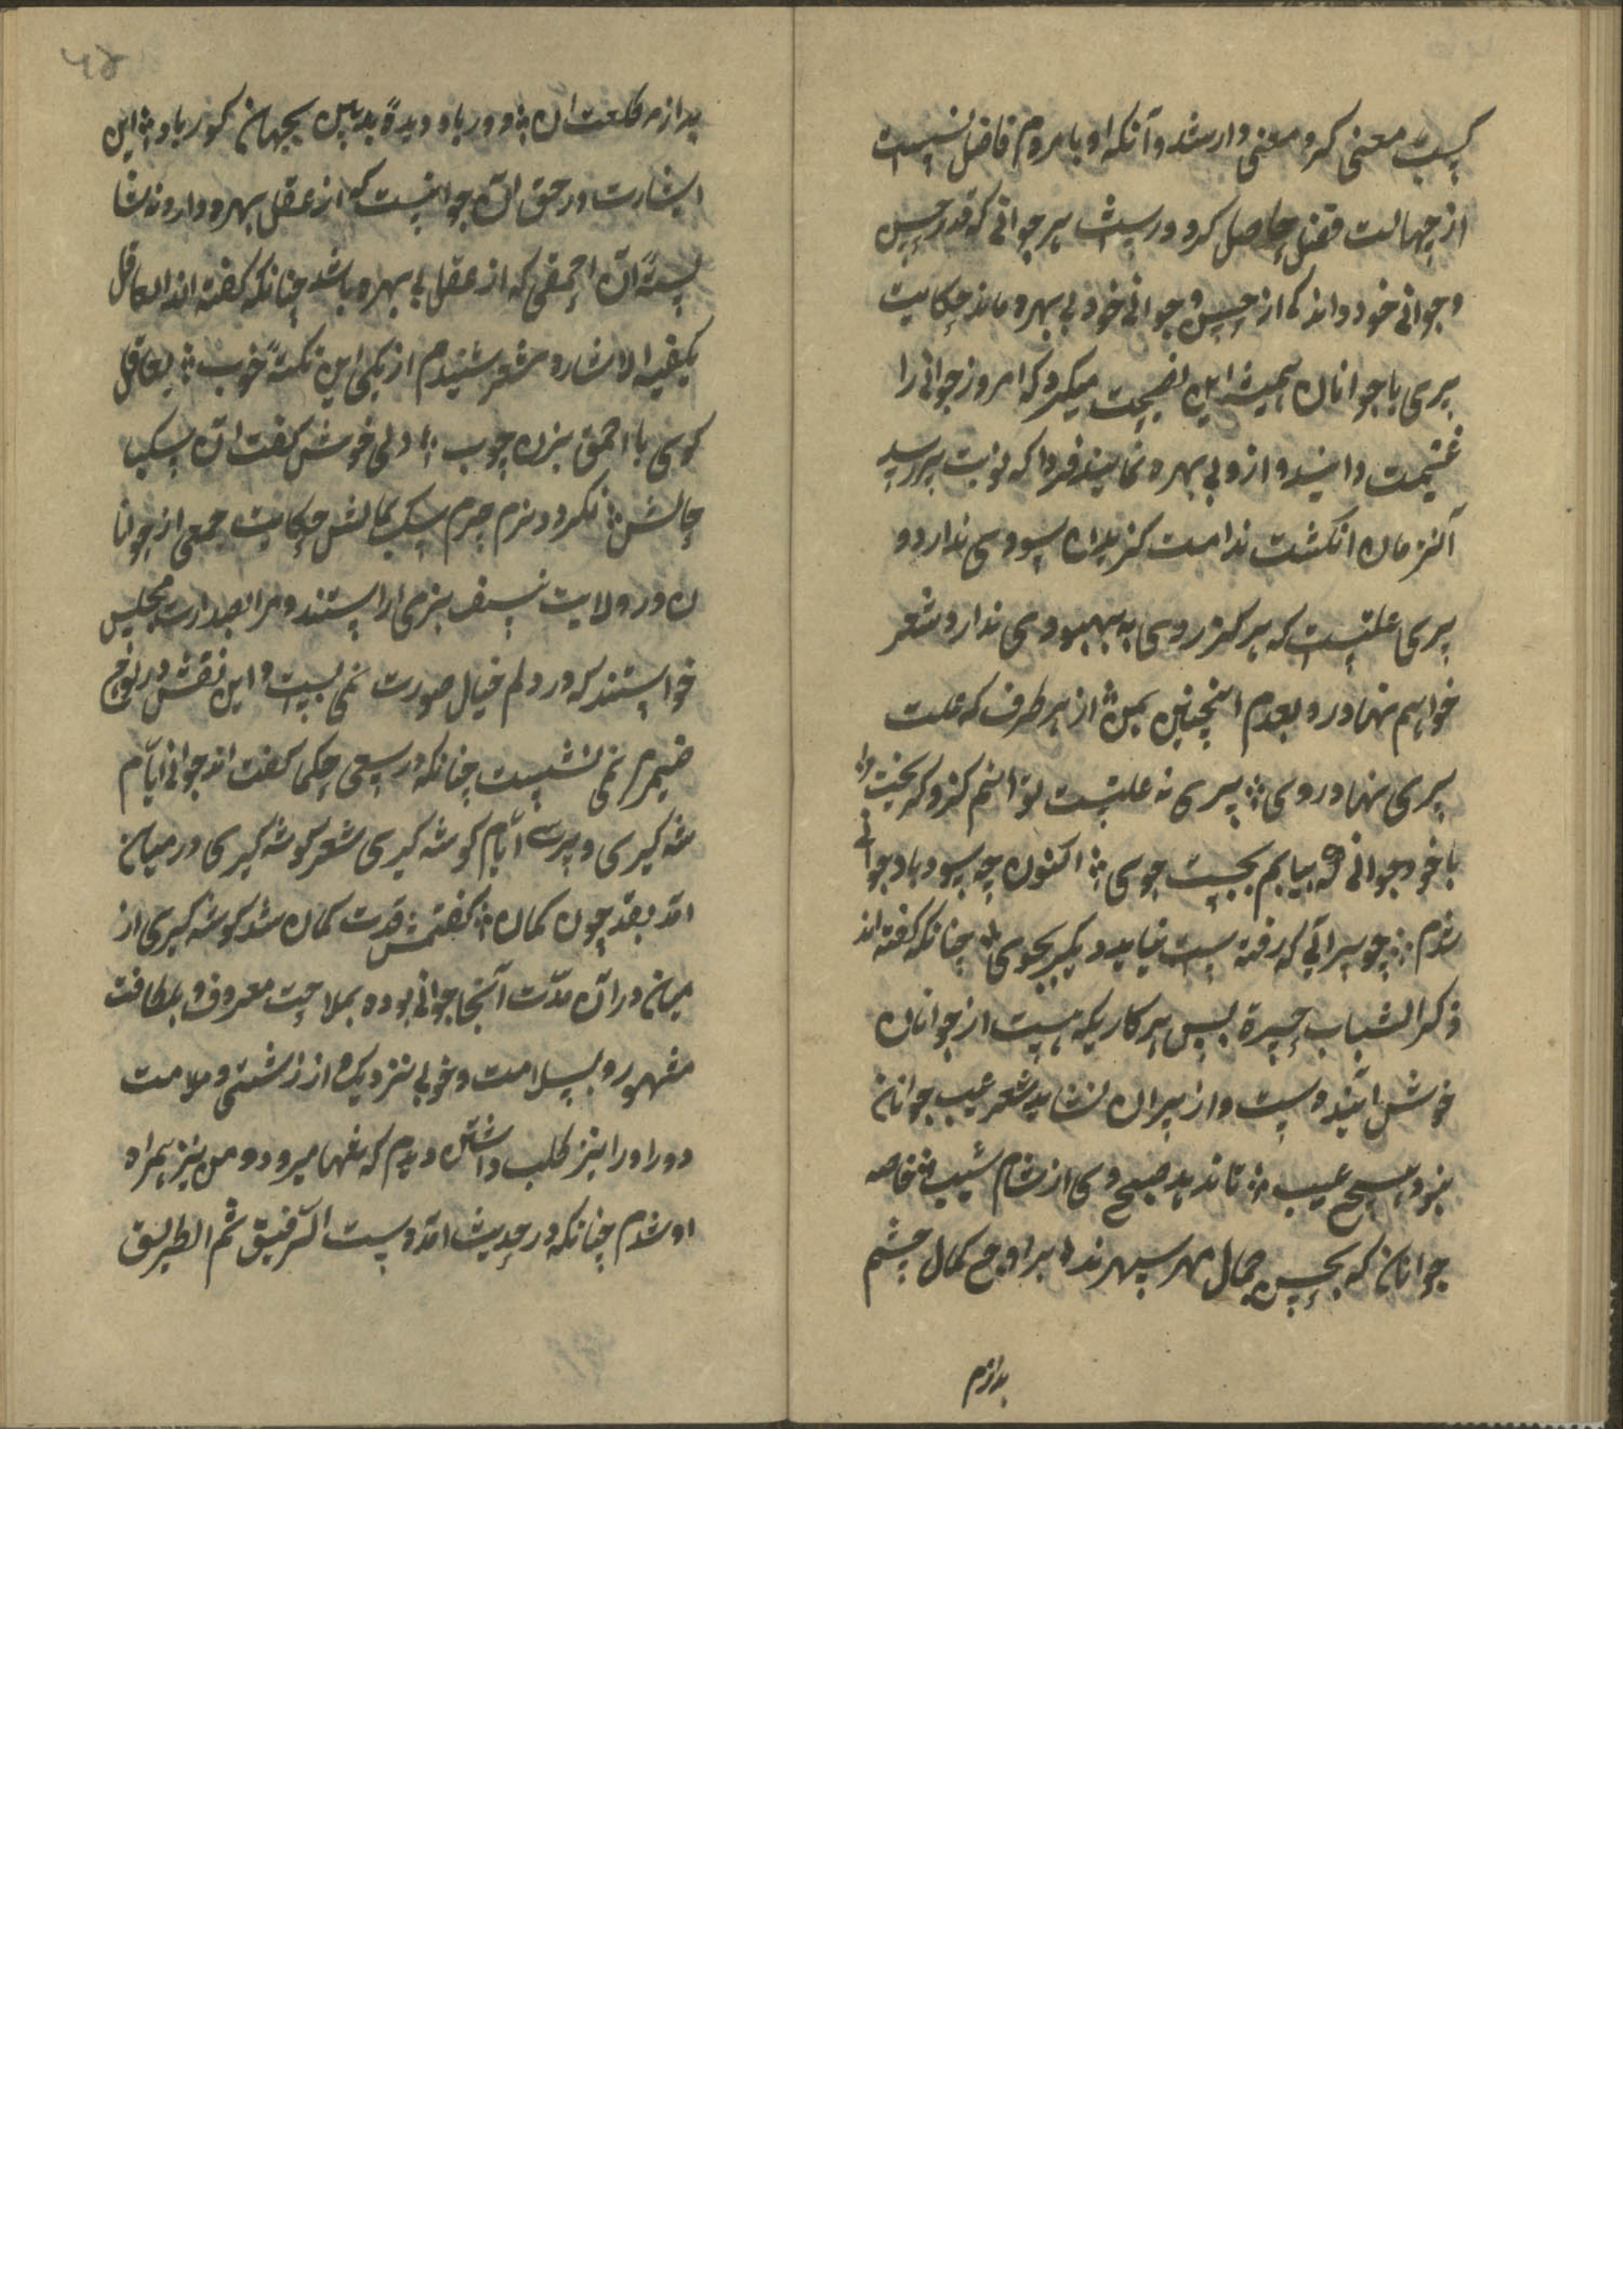 کسب معنی کرد و معنی دار شد و آنکه او با مردم فاضل نشست
از جهالت فضل حاصل کرد در سیرت پیر جوانی که قدر حسن
و جوانی خود داند که از حسن و جوانی خود بی بهره ماند حکایت
پیری با جوانان همیشه این نصیحت میکرد که امروز جوانی را
غنیمت دانید و از و بی بهره نمانید فردا که نوبت پیر رسید
آنزمان انکشت ندامت کزیدن سودی ندارد و
پیری علتیست که هرکز روی به بهبودی ندارد شعر
خواهم نهاد رو بعدم اینچنین بمن ∴ از هر طرف که علت
پیری نهاد روی ∴ پیری نه علتیست توانم کزو کریخت یا
با خود جوانی که بیابم بجست جوی ∴ اکنون چه سود یاد جوانی
شدم ∴ چو پیر آبی که رفته است نیاید دیکر بجوی ∴ چنانکه کفته اند
ذکر الشباب حسرة بس هر کاریکه هست از جوانان
خوش آینده است و از پیران نشاید شعر عیب جوانان
نبود هیچ عیب ∴ تا ندمد صبح وی از شام شیب ∴ خاصه
جوانان که بحسن جمال مهر سپهرند بر اوج کمال چشم
بد ازم
۵۴
بد از مه طلعتان ∴ دور باد دیدهٔ بدبین بجهان کور باد ∴ این
اشارت در حق آن جوانیست که از عقل بهره دارد نه شا
یستهٔ آن احمقی که از عقل بی بهره باشد چنانکه کفته اند العاقل
یکفیه الاشاره شعر شنیدم از یکی این نکتهٔ خوب ∴ بعاقل
کوی با احمق بزن چوب ∴ دلی خوش کفت آن سک
چالش ∴ نکردد نرم چرم سک بمالش حکایت جمعی از جوانا
ن در ولایت نسف بزمی اراستند و مرا بصدارت مجلس
خواستند که در دلم خیال صورت نمی بست و این نقش در لوح
ضمیرم نمی نشست چنانکه در سعی حکما کفته اند جوانی ایّام
شه کیری و پیری ایّام کوشه کیری شعر کوشه کیری در میان
آمد بقد چون کمان ∴ کفتمش قدت کمان شد کوشه کیری از
میان در آن مدّت آنجا جوانی بوده بملاحت معروف و بلطافت
مشهور و بسلامت و خوبی نزدیک و از زشتی و ملامت
دور او را بنز طلب داشتن دیدم که تنها میرود و من نیز همراه
او شدم چنانکه در حدیث آمده است الرّفیق ثم الطریق